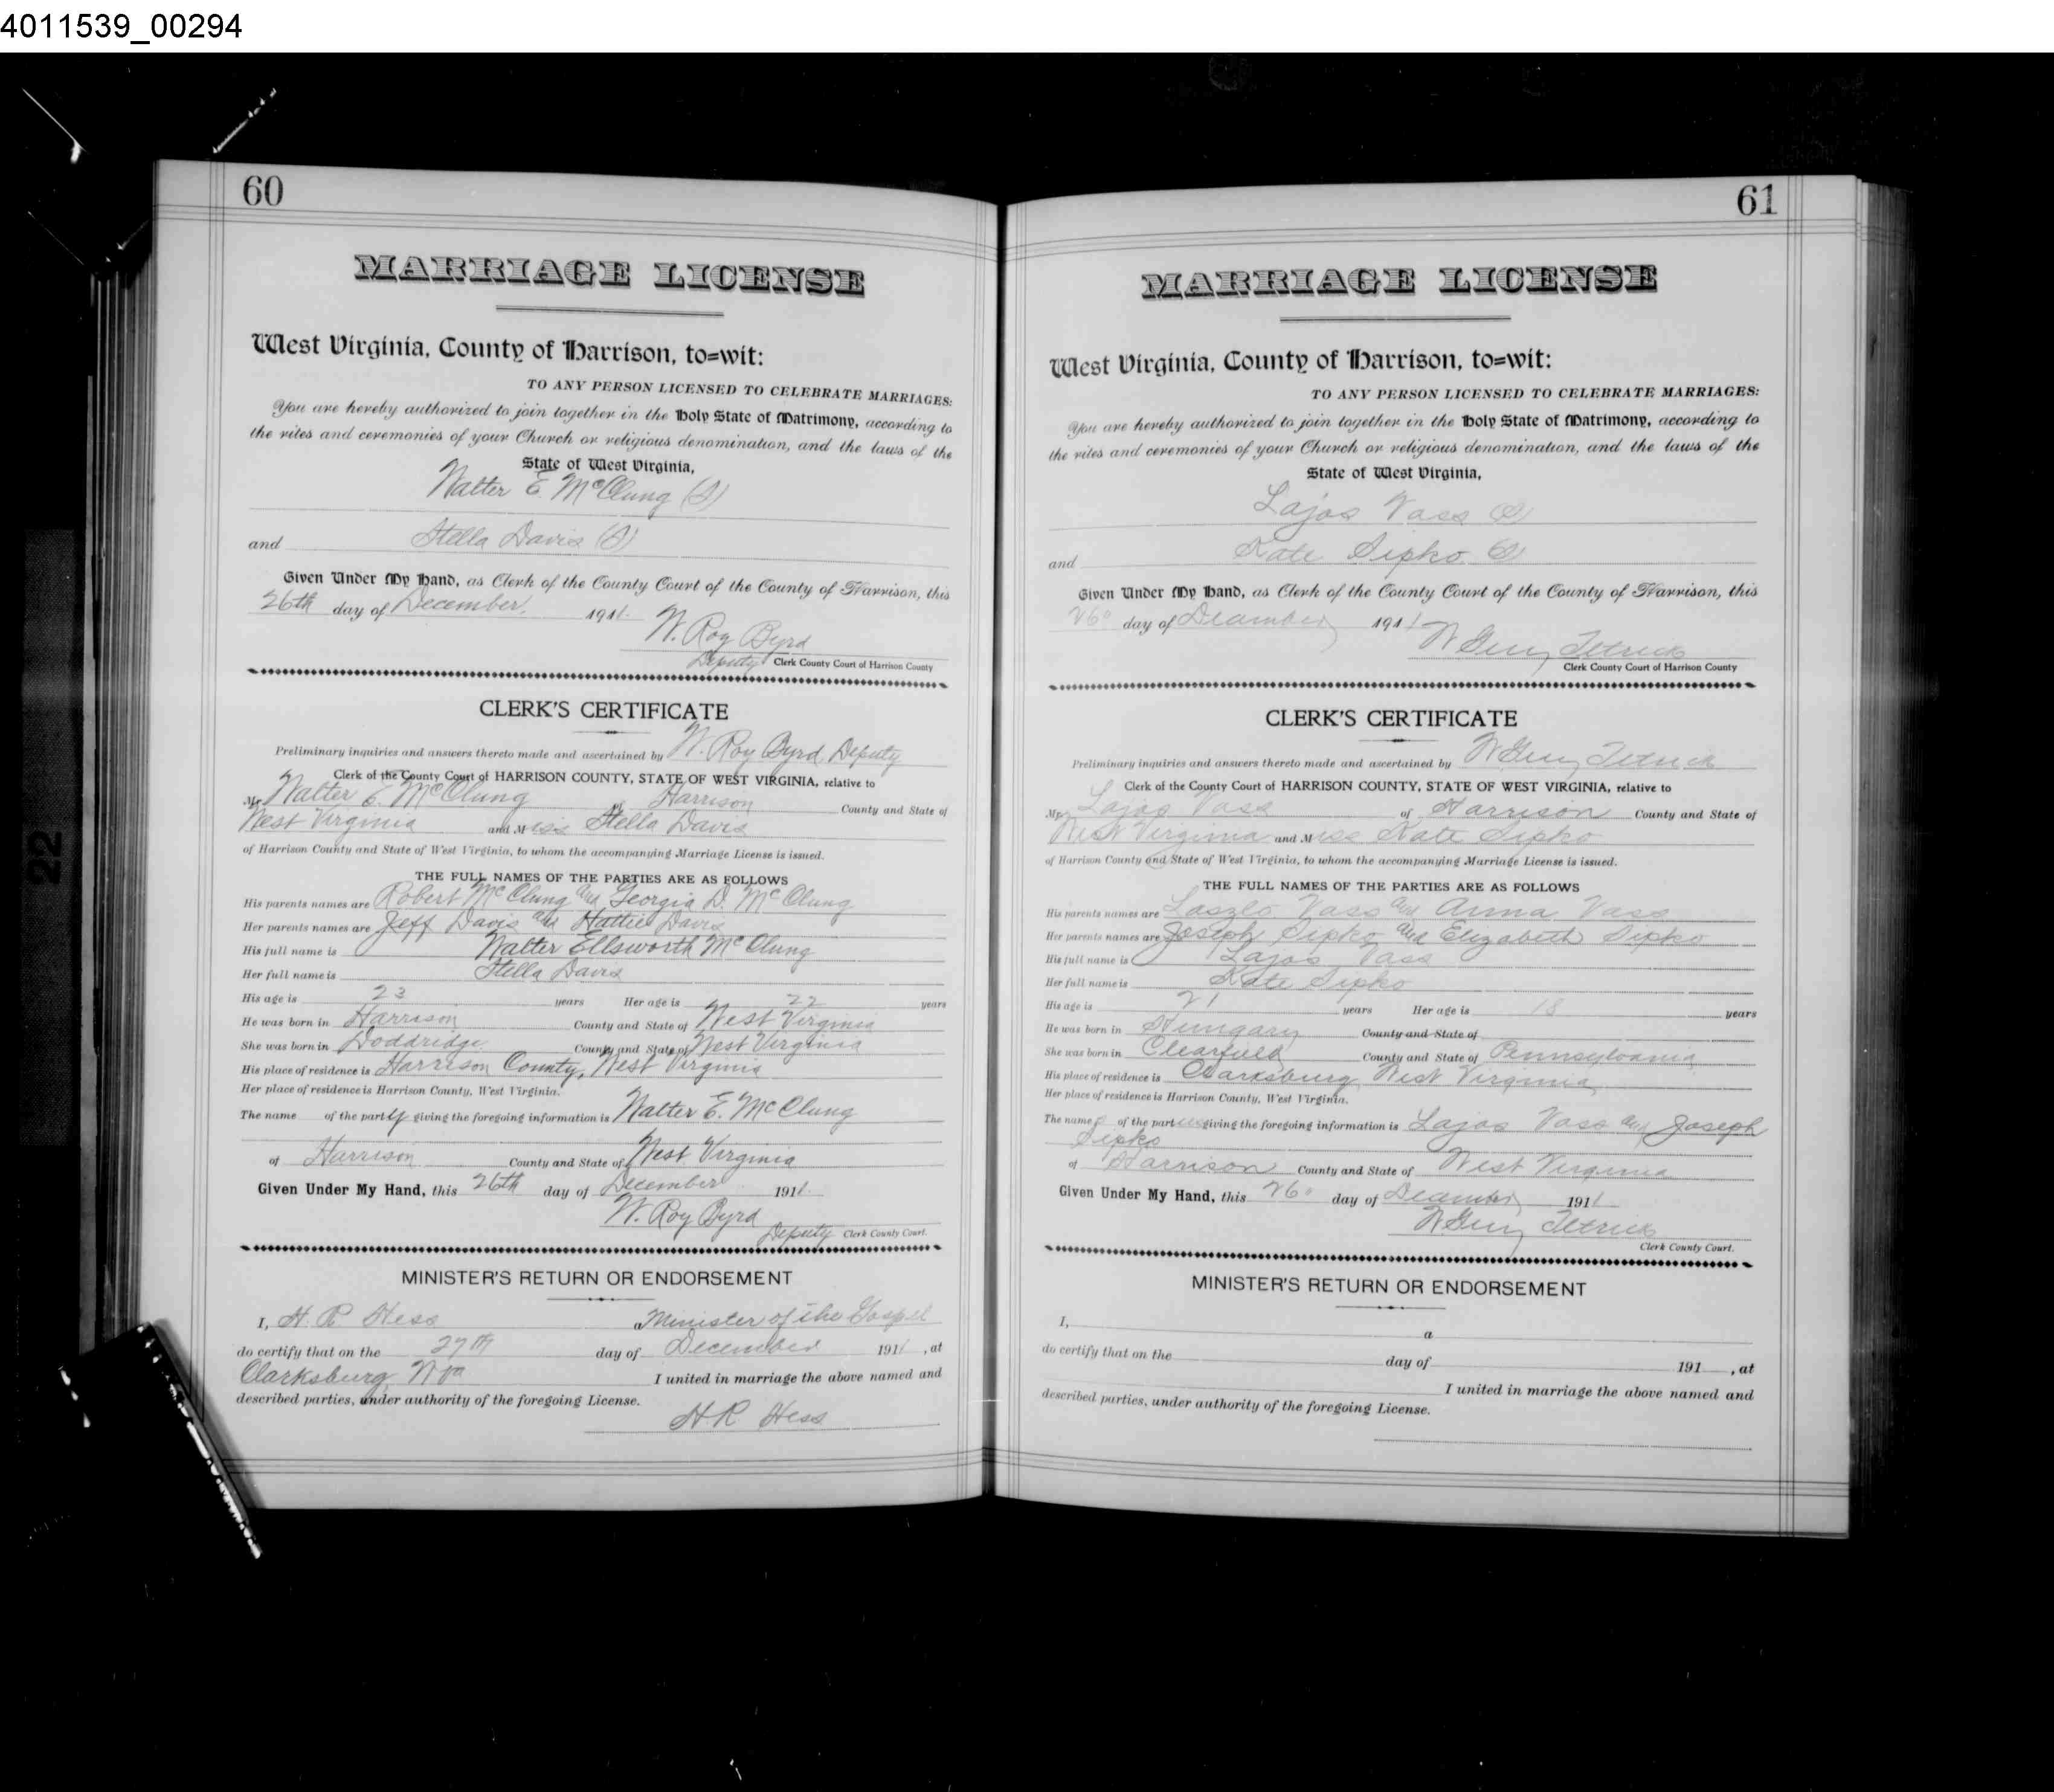 4011539_00294
60
MARRIAGE LICENSE
West Virginia, County of Harrison, to=wit:
TO ANY PERSON LICENSED TO CELEBRATE MARRIAGES:
You are hereby authorized to join together in the Holy State of Matrimony, according to
the rites and ceremonies of your Church or religious denomination, and the laws of the
State of West Virginia,
Walter E. McClung (S)
and Stella Davis (S)
Given Under My Hand, as Clerk of the County Court of the County of Harrison, this
26th day of December 1911.
W. Roy Byrd
Deputy Clerk County Court of Harrison County
CLERK'S CERTIFICATE
Preliminary inquiries and answers thereto made and ascertained by W. Roy Byrd, Deputy
Clerk of the County Court of HARRISON COUNTY, STATE OF WEST VIRGINIA, relative to
Mr. Walter E. McClung of Harrison County and State of
West Virginia and Miss Stella Davis
of Harrison County and State of West Virginia, to whom the accompanying Marriage License is issued.
THE FULL NAMES OF THE PARTIES ARE AS FOLLOWS
His parents names are Robert McClung and Georgia D. McClung
Her parents names are Jeff Davis and Hattie Davis
His full name is Walter Ellsworth McClung
Her full name is Stella Davis
His age is 23 years Her age is 22 years
He was born in Harrison County and State of West Virginia
She was born in Doddridge County and State of West Virginia
His place of residence is Harrison County, West Virginia
Her place of residence is Harrison County, West Virginia.
The name of the party giving the foregoing information is Walter E. McClung
of Harrison County and State of West Virginia
Given Under My Hand, this 26th day of December 1911.
W. Roy Byrd
Deputy Clerk County Court.
MINISTER'S RETURN OR ENDORSEMENT
I, H. R. Hess a Minister of the Gospel
do certify that on the 27th day of December 1911, at
Clarksburg W Va I united in marriage the above named and
described parties, under authority of the foregoing License.
H R Hess
61
MARRIAGE LICENSE
West Virginia, County of Harrison, to=wit:
TO ANY PERSON LICENSED TO CELEBRATE MARRIAGES:
You are hereby authorized to join together in the Holy State of Matrimony, according to
the rites and ceremonies of your Church or religious denomination, and the laws of the
State of West Virginia,
Lajos Vass (S)
and Kate Sipko (S)
Given Under My Hand, as Clerk of the County Court of the County of Harrison, this
26" day of December 1911
W Guy Tetrick
Clerk County Court of Harrison County
CLERK'S CERTIFICATE
Preliminary inquiries and answers thereto made and ascertained by W Guy Tetrick
Clerk of the County Court of HARRISON COUNTY, STATE OF WEST VIRGINIA, relative to
Mr. Lajos Vass of Harrison County and State of
West Virginia and Miss Kate Sipko
of Harrison County and State of West Virginia, to whom the accompanying Marriage License is issued.
THE FULL NAMES OF THE PARTIES ARE AS FOLLOWS
His parents names are Laszlo Vass and Anna Vass
Her parents names are Joseph Sipko and Elizabeth Sipko
His full name is Lajos Vass
Her full name is Kate Sipko
His age is 21 years Her age is 18 years
He was born in Hungary County and State of
She was born in Clearfield County and State of Pennsylvania
His place of residence is Clarksburg West Virginia
Her place of residence is Harrison County, West Virginia.
The names of the parties giving the foregoing information is Lajos Vass and Joseph
Sipko
of Harrison County and State of West Virginia
Given Under My Hand, this 26" day of December 1911
W Guy Tetrick
Clerk County Court.
MINISTER'S RETURN OR ENDORSEMENT
I,
a
do certify that on the day of 191 , at
I united in marriage the above named and
described parties, under authority of the foregoing License.
22